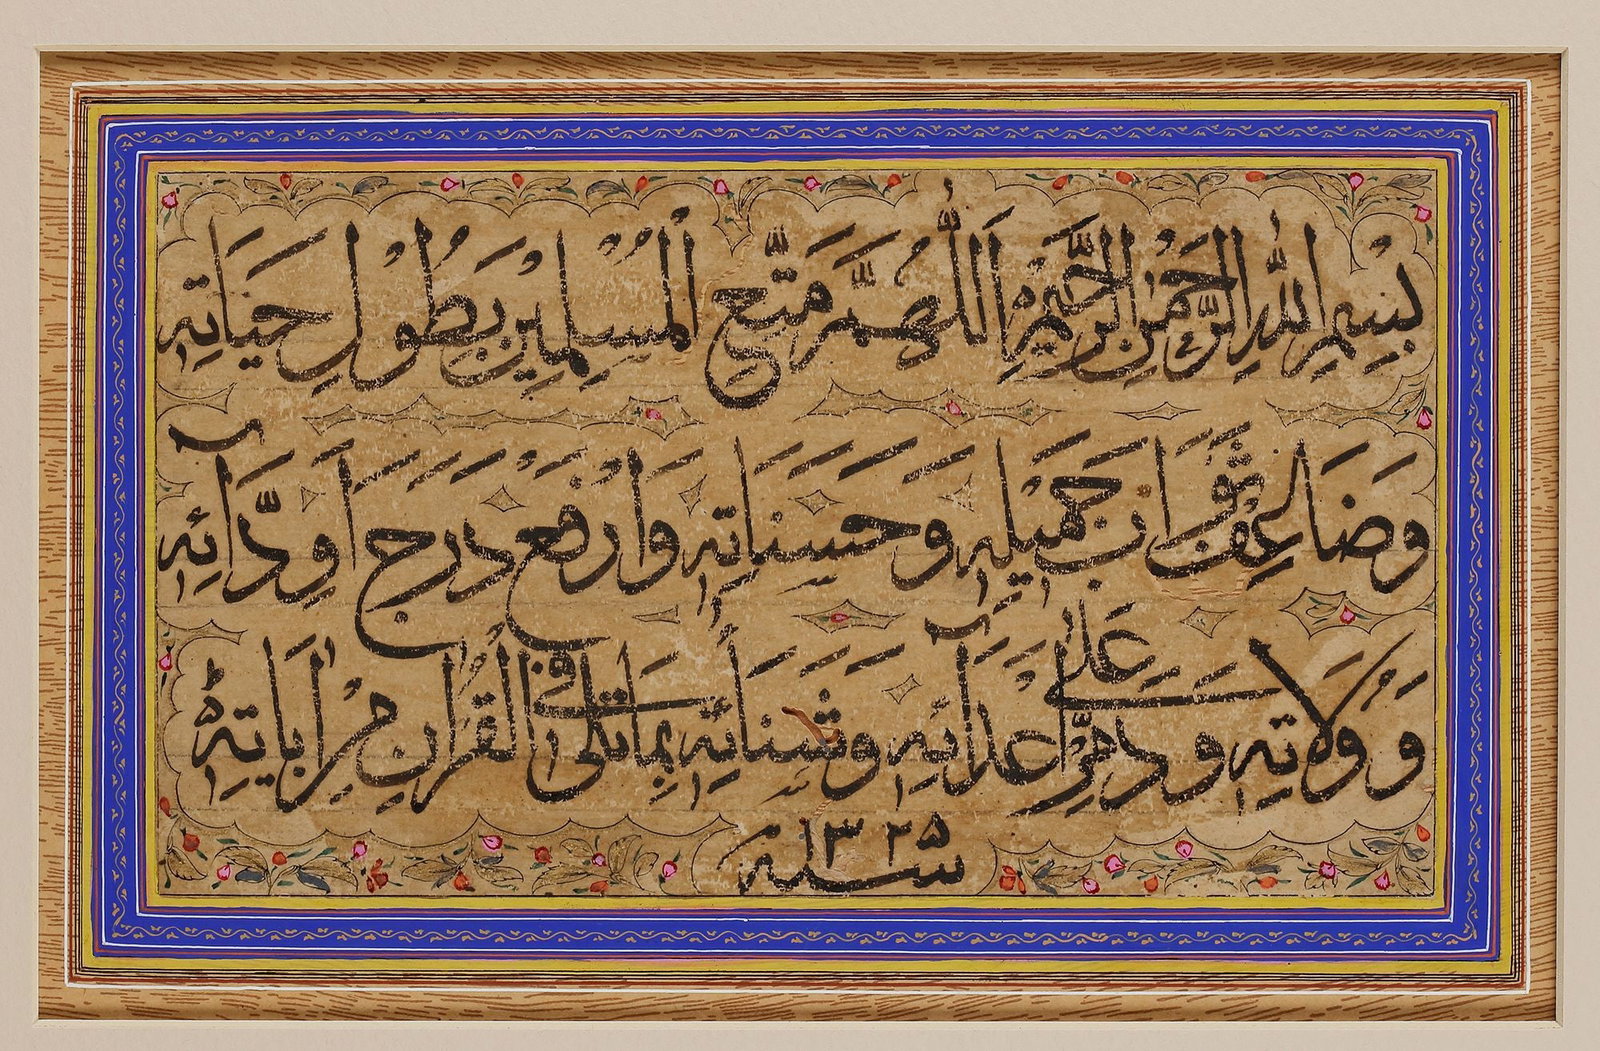 بِسْمِ اللّٰهِ الرَّحْمٰنِ الرَّحِيْمِ اَللّٰهُمَّ مَتِّعِ الْمُسْلِمِيْنَ بِطُوْلِ حَيَاتِهٖ
وَضَاعِفْ ثَوَابَ جَمِيْلِهٖ وَحَسَنَاتِهٖ وَارْفَعْ دَرَجَةَ اَوِدَّآئِهٖ
وَوُلَاتِهٖ وَدَمِّرْ عَلٰى اَعْدَآئِهٖ وَشَنَائِهٖ بِمَا تُلِیَ فِی الْقُرْاٰنِ مِنْ اٰيَاتِهٖ
سنة ١٣٢٥